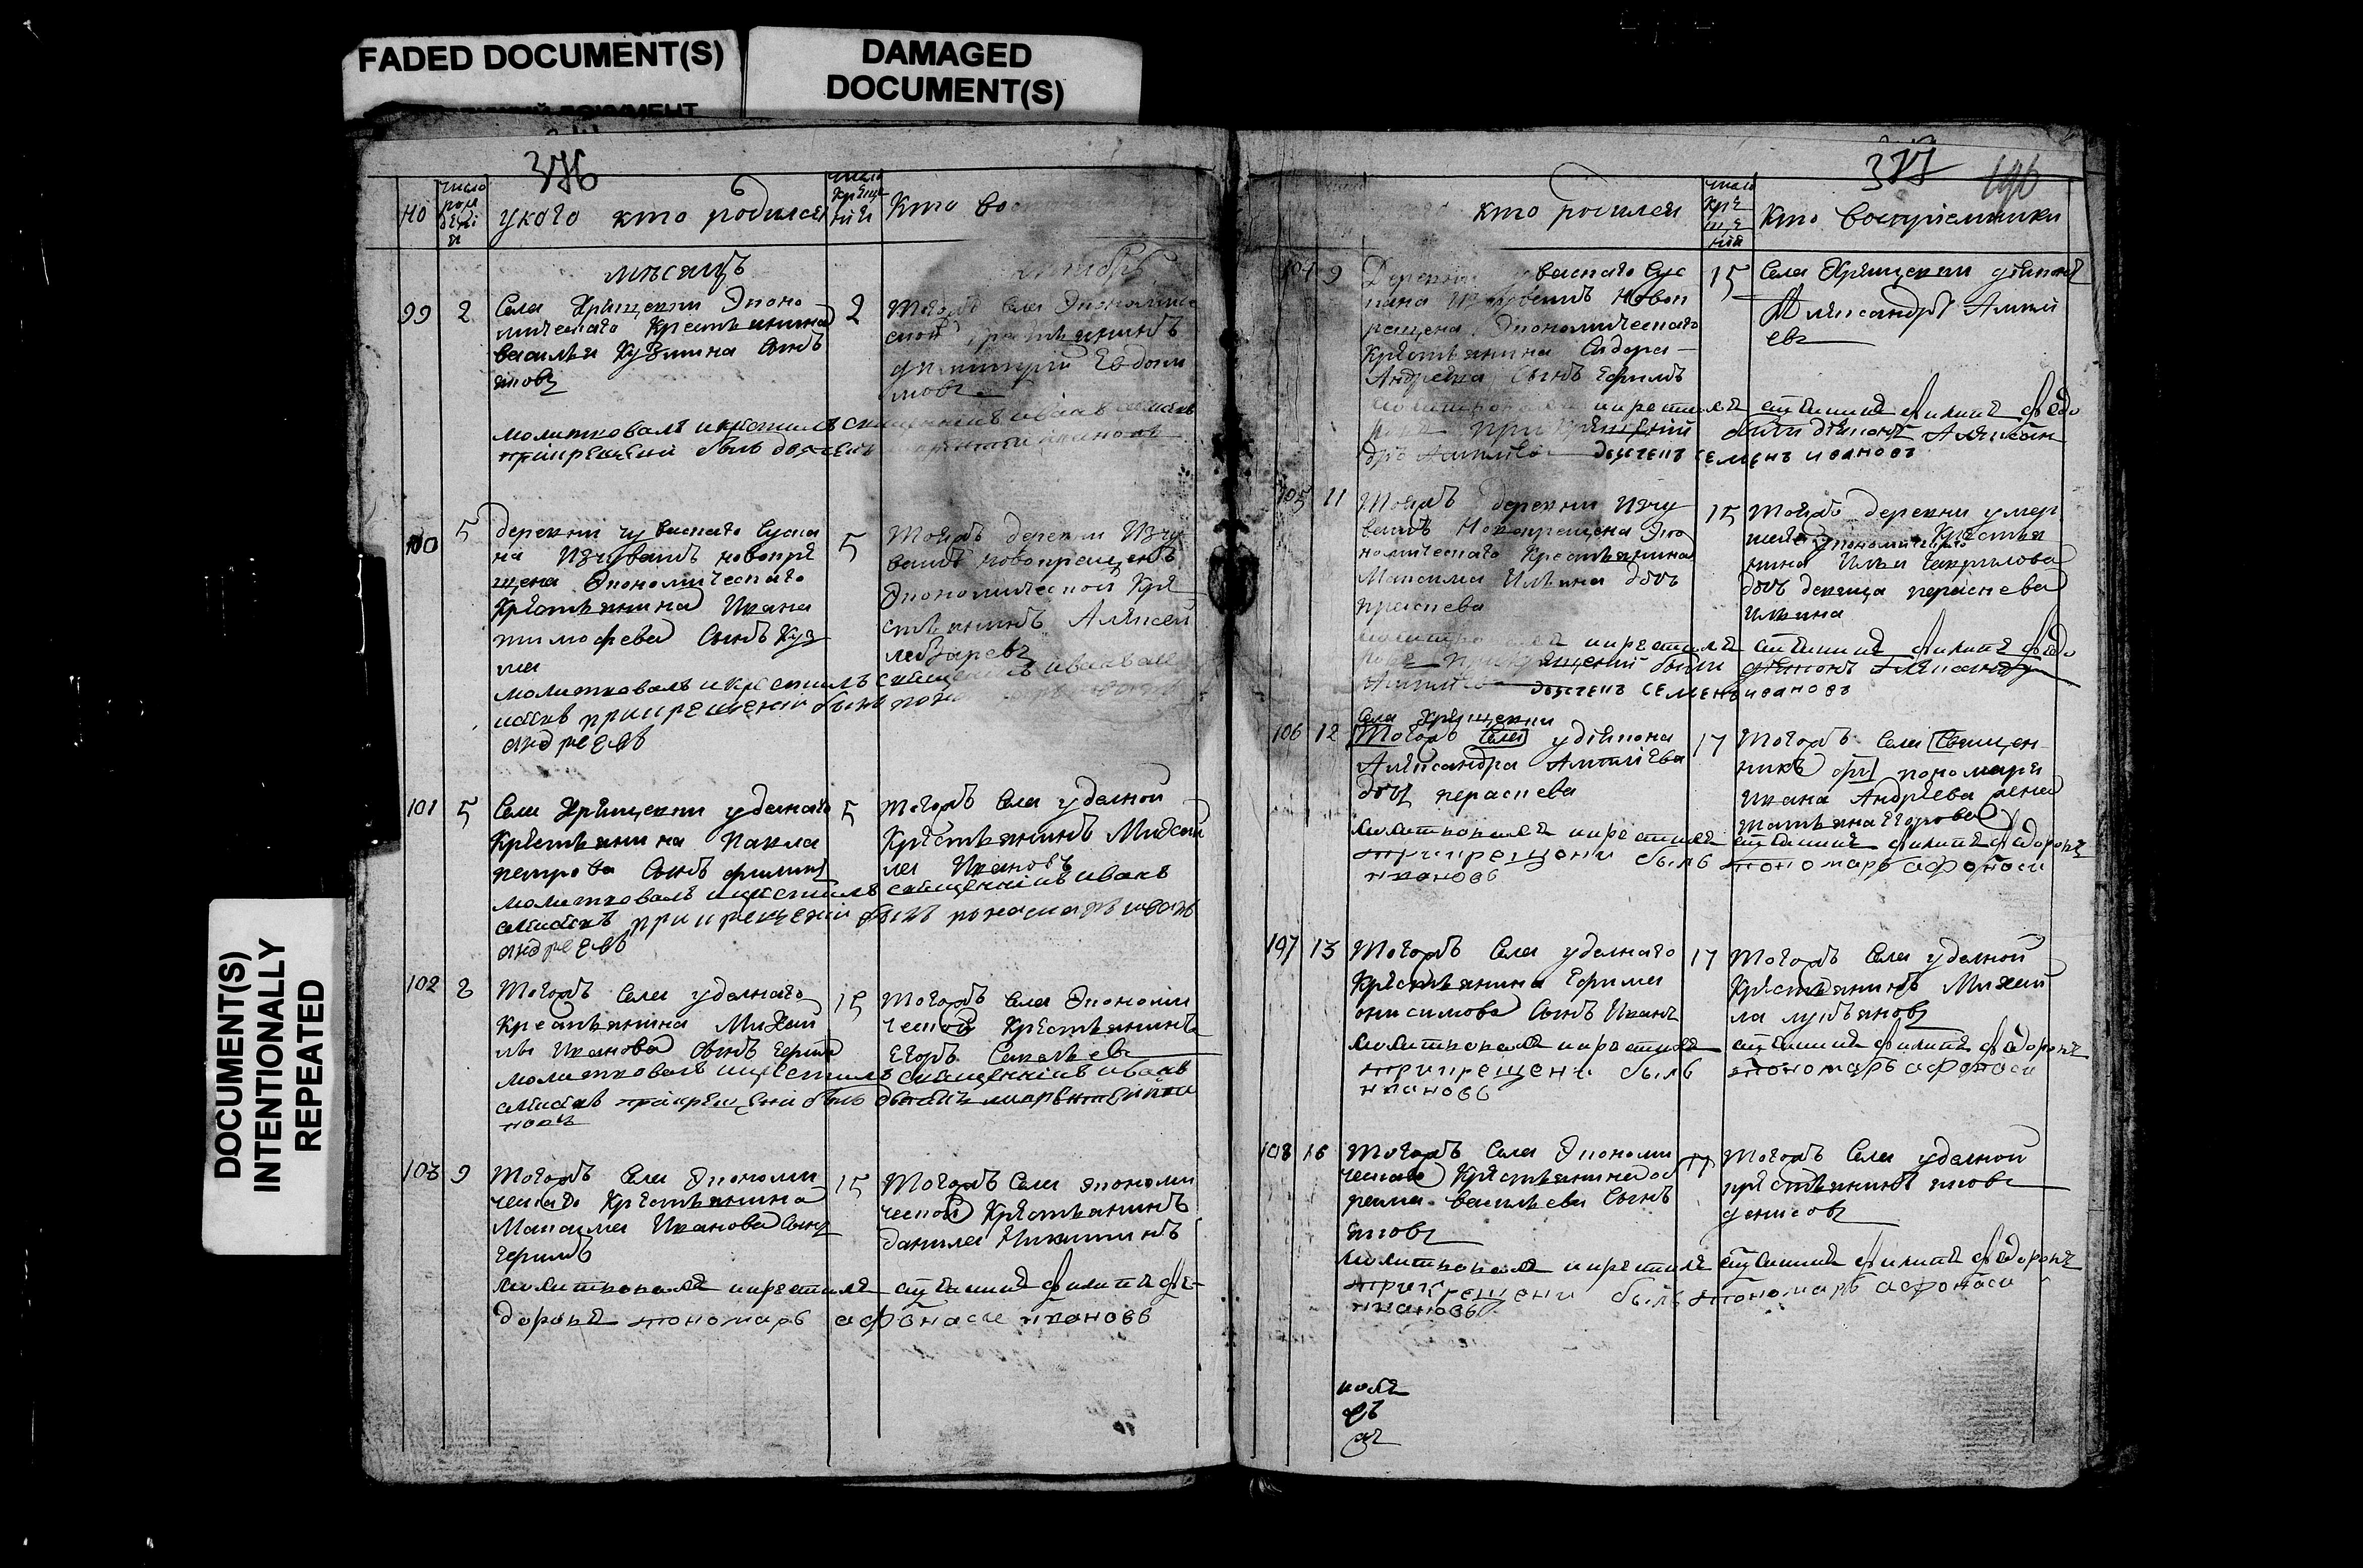 FADED DOCUMENT(S)
DAMAGED
DOCUMENT(S)
DOCUMENT(S)
INTENTIONALLY
REPEATED
376
но
число рож дені я
у кого кто родился
число креще ния
Кто во
месяцъ
99 2
Села Хрящевки Эконо
мическаго Крестьянина
василья Кузмина сынъ
яковъ
2
Тогожъ села Экономиче
ской крестьянинъ
дмитрий Евдоки
мовъ
молитвовалъ и крестилъ священникъ иванъ
при крещении былъ дьячекъ
100 5
деревни чувашского Суска
на Изчувашъ новокре
щена Экономическаго
Крестьянина Ивана
тимофеева Сынъ Куз
ма
5
Тоежъ деревни Изчу
вашъ новокрещенъ
Экономической Кре
стьянинъ Алексей
лазаревъ
молитвовалъ и крестилъ священникъ иванъ
при крещении былъ
андреевъ
101 5
Села Хрящевки уделнаго
Крестьянина Павла
петрова Сынъ филипъ
5
Тогожъ Села уделной
Крестьянинъ Михай
ла Ивановъ
молитвовалъ и крестилъ священникъ иванъ
при крещении былъ пономарь иванъ
андреевъ
102 8
Тогожъ Села уделнаго
Крестьянина Михай
лы Иванова Сынъ Ефимъ
15
Тогожъ Села Экономи
ческой Крестьянинъ
Егоръ Савельевъ
молитвовалъ и крестилъ священникъ иванъ
при крещени былъ
103 9
Тогожъ Села Экономи
ческаго Крестьянина
Максима Иванова Сынъ
Ефимъ
15
Тогожъ Села экономи
ческой Крестьянинъ
данила Никитинъ
молитвовалъ и крестилъ священникъ филипъ фе-
доровъ пономарь афонасеи ивановъ
377 196
кто родился
число кре ще ний
Кто восприемники
104 9
Деревни чувашского Сус
кана Изчувашъ Новок
рещена Экономическаго
Крестьянина Сидора
Андреева Сынъ Ефимъ
15
Села Хрящевки дьяконъ
Александръ Алкси
евъ
молитвовалъ и крестилъ священникъ филипъ федо
ровъ при крещении были дьяконъ Алексан
дръ дьячекъ семенъ ивановъ
105 11
Тоежъ деревни Изчу
вашъ Новокрещена Эко
номическаго Крестьянина
Максима Ильина дочь
праскева
15
Тоежъ деревни умер
шаго экономическаго Крестья
нина Ильи Гаврилова
дочь девица параскева
Ильина
молитвовалъ и крестилъ священникъ филипъ федо
ровъ при крещений были дьяконъ Александръ
дьячекъ семенъ ивановъ
106 12
Села Хрящевки
Тогожъ Села у дьякона
Александра
дочь параскева
17
Тогожъ Села Священ
никъ пономаря
Ивана Андреева жена
татьяна Егорова
молитвовалъ и крестилъ священникъ филипъ федоровъ
при крещени былъ пономарь афонаси
ивановъ
107 13
Тогожъ Села уделнаго
Крестьянина Ефима
онисимова Сынъ Иванъ
17
Тогожъ Села уделной
Крестьянинъ Михай
ла лукьяновъ
молитвовалъ и крестилъ священникъ филипъ федоровъ
при крещени былъ пономарь афонаси
ивановъ
108 16
Тогожъ Села Экономи
ческаго Крестьянина
василева Сынъ
яковъ
17
Тогожъ Села уделной
крестьянинъ яковъ
денисовъ
молитвовалъ и крестилъ священникъ филипъ федоровъ
при крещени былъ пономарь афонаси
ивановъ